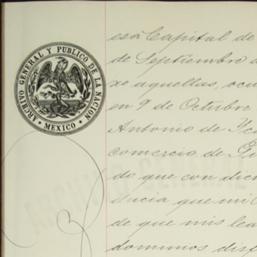 ARCHIVO GENERAL Y PUBLICO DE LA NACION
• MEXICO •
esa Capital de
de Septiembre d
xe aquellas, ocu
en 9 de Octubre
Antonio de Yca
comercio de
do que con dicn
de que mis lea
dominios disp